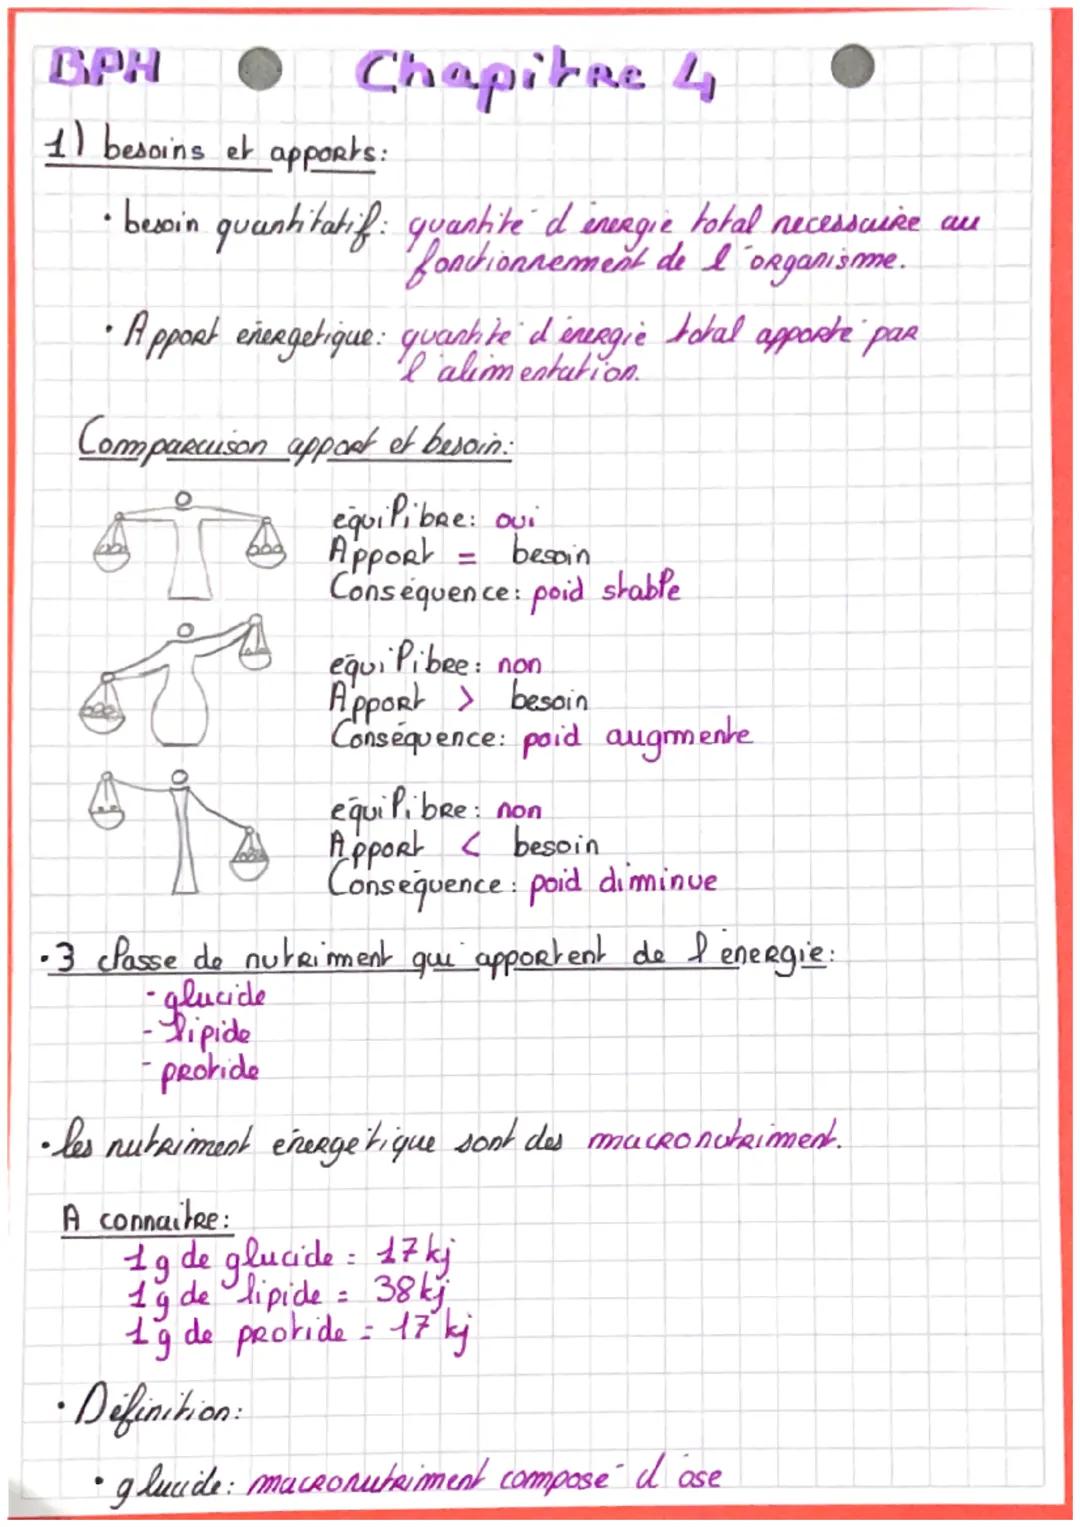 BPH Chapitre 4
1) besoins et apports:
• besoin quantitatif: quantité d'énergie total necessaire au
fonctionnement de l'organisme.
• Apport énergetique: quantité d'énergie total apporté par
l'alimentation.
Comparaison apport et besoin:
équilibre: oui
Apport = besoin
Conséquence: poid stable
équilibre: non
Apport > besoin
Conséquence: poid augmente
équilibre: non
Apport < besoin
Conséquence: poid diminue
• 3 classe de nutriment qui apportent de l'énergie:
- glucide
- lipide
- protide
• les nutriment énergétique sont des macronutriment.
A connaitre:
1g de glucide = 17 kj
1g de lipide = 38 kj
1g de protide = 17 kj
• Définition:
• glucide: macronutriment composé d'ose